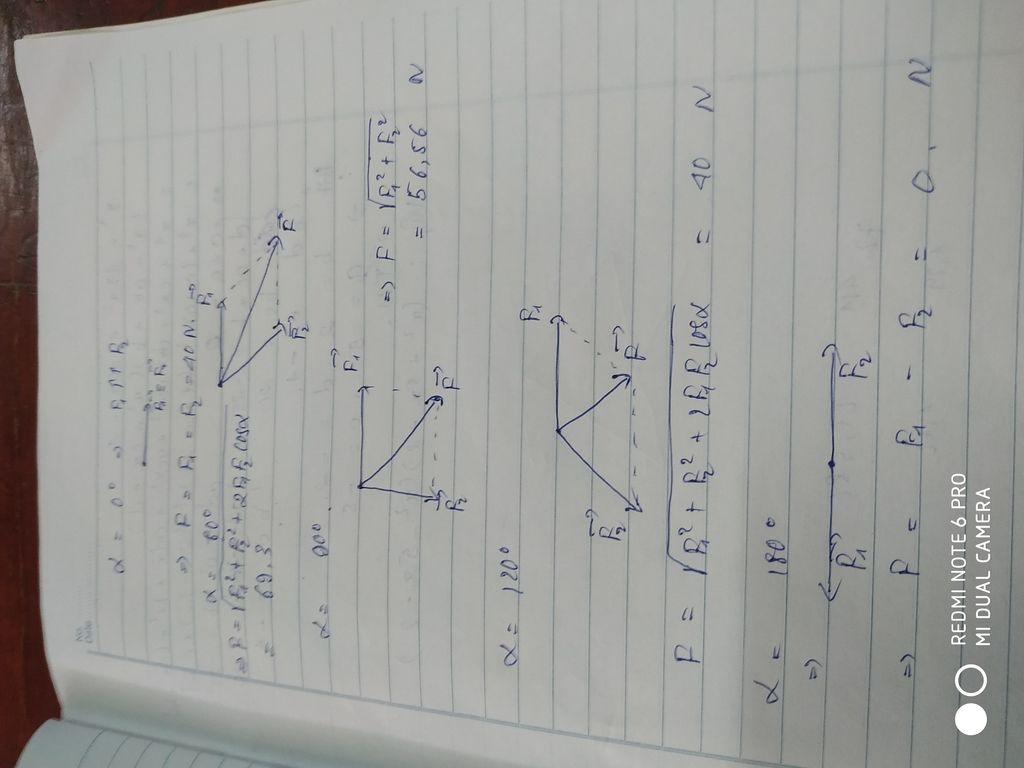 No.
Date
α = 0° ⇒ F₁ ↑↑ F₂
⇒ F = F₁ = F₂ = 40 N.
F₁⃗
α = 60°
⇒ F = √F₁² + F₂² + 2F₁F₂ cosα
= 69,3
F₂⃗
F⃗
α = 90°
F₁⃗
F₂⃗
F⃗
⇒ F = √F₁² + F₂²
= 56,56 N
α = 120°
F₁
F₂⃗
F⃗
F = √F₁² + F₂² + 2F₁F₂ cosα = 40 N
α = 180°
⇒
F₁⃗
F₂⃗
⇒ F = F₁ - F₂ = 0. N
REDMI NOTE 6 PRO
MI DUAL CAMERA